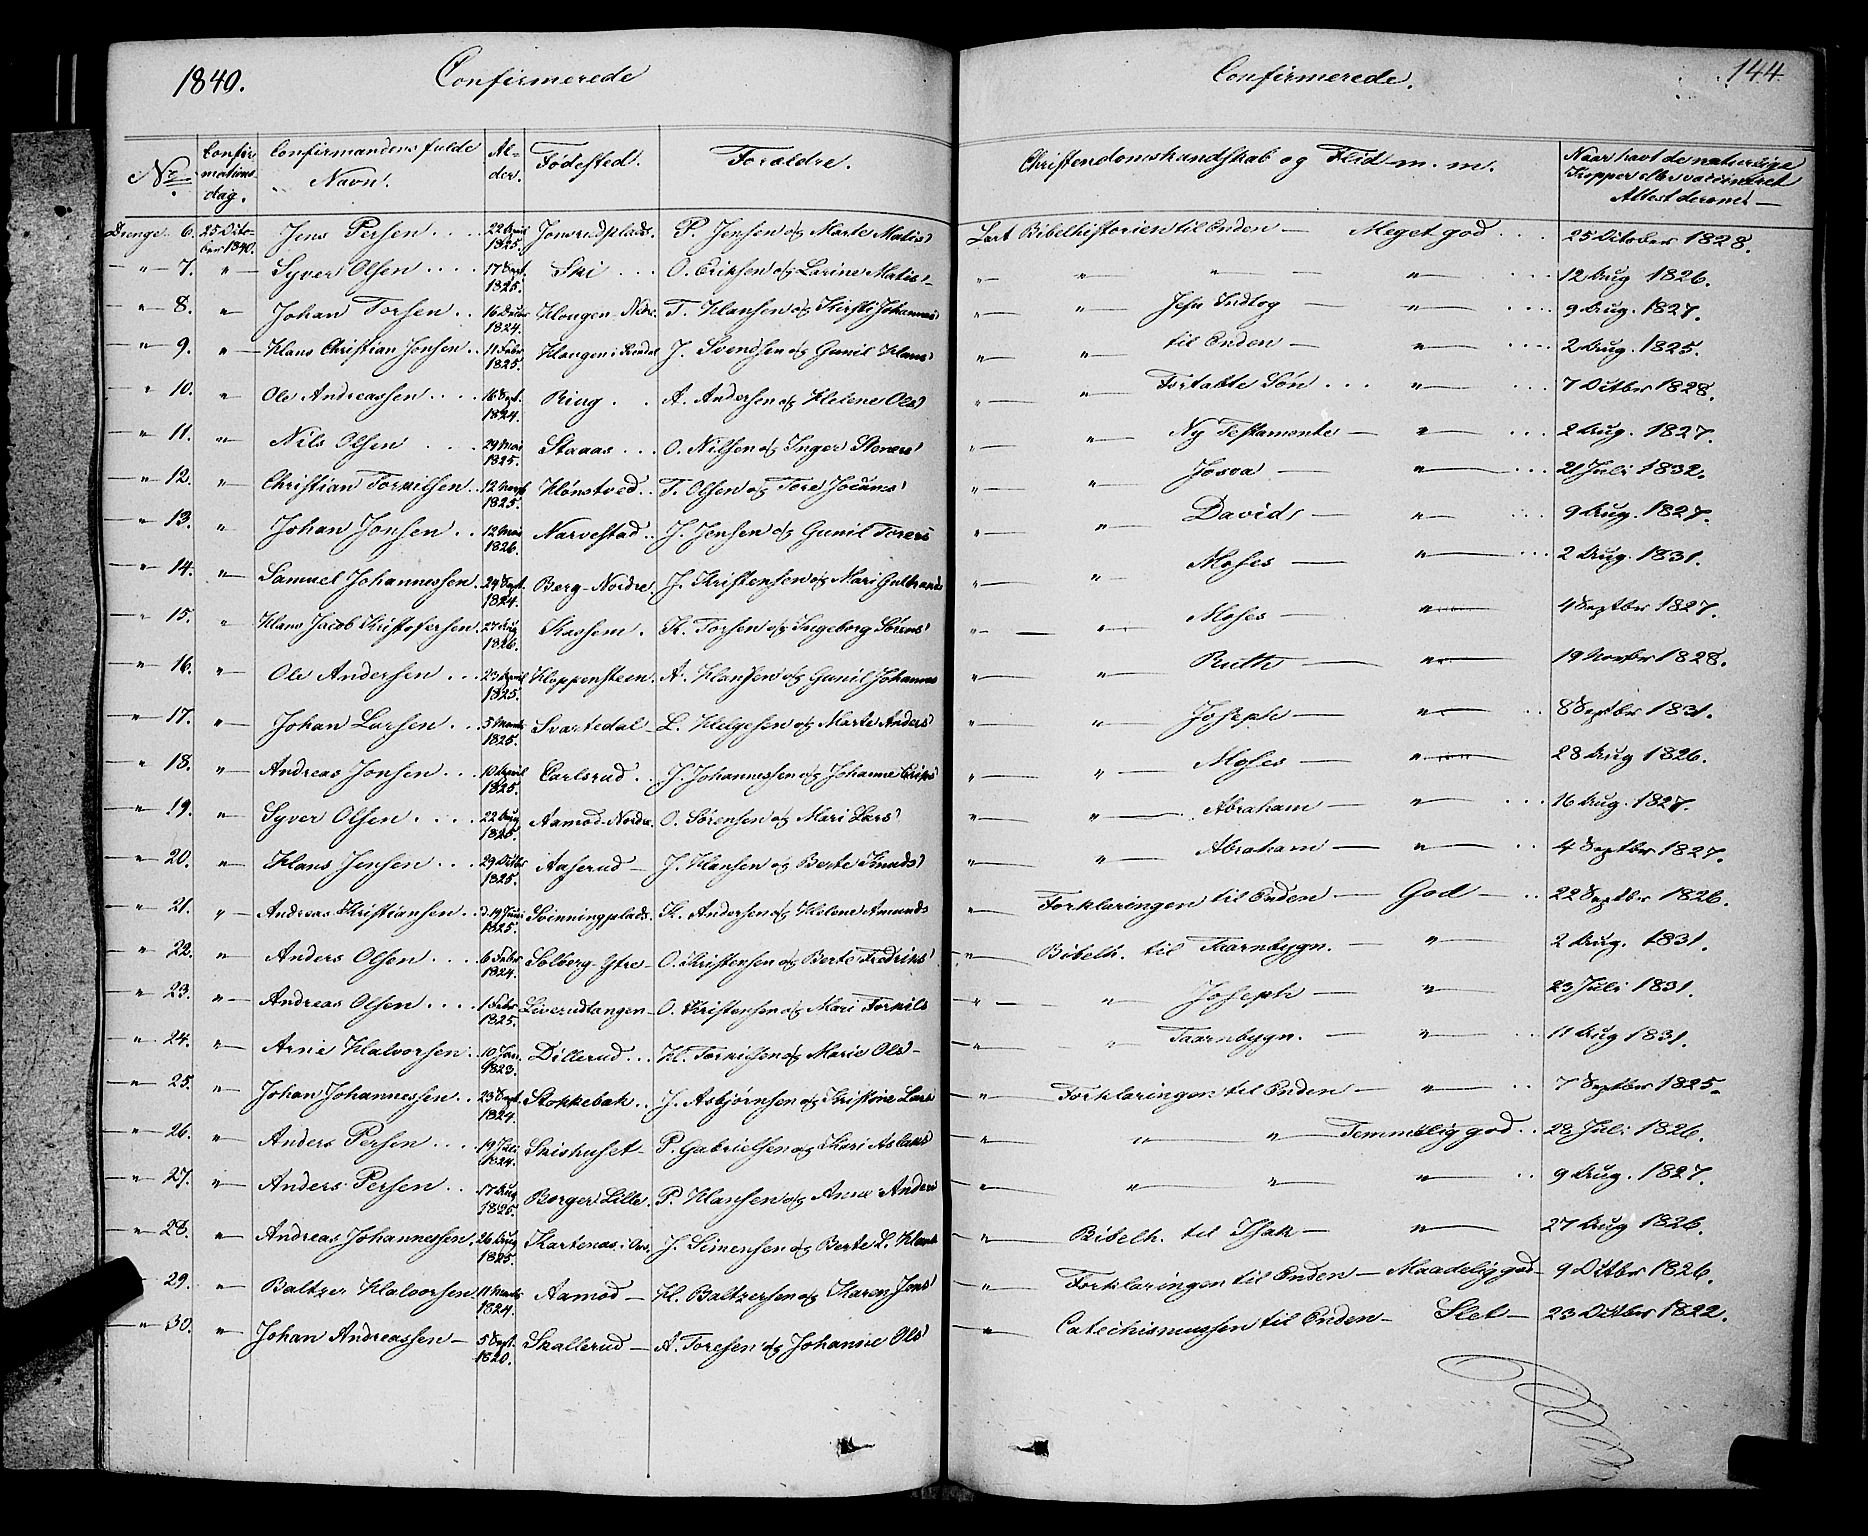 1840. Confirmerede
Confirmerede. 144
No. Confirmationsdag. Confirmandens fulde Navn. Alder. Fødested. Forældre.
Christendomskundskab og Flid m. m. Naar havt de naturlige Kopper eller vaccineret Attest derom
Drenge 6. 25 October 1840. Jens Persen 22 April 1825. Jonsrudplads. P. Jensen og Marte Matis Lært Bibelhistorien til Enden — Meget god 25 October 1828.
" 7. " Syver Olsen 17 Sept. 1825. Ski O. Eriksen og Larine Matis " " " " 12 Aug 1826.
" 8. " Johan Torsen 16 Decbr 1824. Hougen Ndre. T. Hansen og Kirsti Johannes " " Jesu Indtog — " 9 Aug. 1827.
" 9. " Hans Christian Jonsen 11 Febr 1825. Haugen i J. Svendsen og Gunil Hans " " til Enden — " 2 Aug. 1825.
" 10. " Ole Andreassen 16 Sept. 1824. Ring A. Andersen og Helene Ols " " Fortabte Søn " 7 Octbr 1828.
" 11. " Nils Olsen 29 1825. Staaas O. Nilsen og Inger Steners " " Ny Testamente — " 2 Aug. 1827.
" 12. " Christian Torkilsen 12 1825. Hønstved T. Olsen og Tore Jocums " " Josva — " 21 Juli 1832.
" 13. " Johan Jonsen 12 1826. Narvestad J. Jensen og Gunil Torers " " Davids — " 9 Aug. 1827.
" 14. " Samuel Johannessen 29 Sept. 1824. Berg Nordre J. Kristensen og Mari Gulbrands " " Moses — " 2 Aug. 1831.
" 15. " Hans Jacob Kristofersen 27 Aug 1826. Skussem. K. Torsen og Ingeborg Sørens " " Moses — " 4 Septbr 1827.
" 16. " Ole Andersen 23 April 1825. Kloppensteen. A. Hansen og Gunil Johannes " " Ruth — " 19 Novbr 1828.
" 17. " Johan Larsen 5 Marts 1825. Svartedal L. Helgesen og Marte Anders " " Joseph — " 8 Septbr 1831.
" 18. " Andreas Jonsen 10 April 1825. Carlsrud J. Johannessen og Johanne Eriks " " Moses — " 28 Aug 1826.
" 19. " Syver Olsen 22 Aug 1825. Aamod Nordre. O. Sørensen og Mari Lars " " Abraham — " 16 Aug. 1827.
" 20. " Hans Jensen 29 Octbr 1825. Aaserud J. Hansen og Berte Knuds " " Abraham — " 4 Septbr 1827.
" 21. " Andreas Kristiansen 19 Juni 1825. Svinningplads. K. Andersen og Helene Amunds " Forklaringen til Enden — God 22 Septbr 1826.
" 22. " Anders Olsen 6 Febr 1824. Solberg Ytre O. Kristensen og Berte Fredriks " Bibelh. til Taarnbygn. — " 2 Aug. 1831.
" 23. " Andreas Olsen 1 Febr 1825. Liverudtangen O. Kristensen og Mari Torkils " " Joseph — " 23 Juli 1831.
" 24. " Arne Halvorsen 10 Jan. 1823. Dillerud H. Torkilsen og Marie Ols " " Taarnbygn. — " 11 Aug 1831.
" 25. " Johan Johannessen 23 Sept. 1824. Stokkebak J. Asbjørnsen og Kristine Lars " Forklaringen til Enden — " 7 Septbr 1825.
" 26. " Anders Persen 19 Juli 1824. Skishuset P. Gabrielsen og Kari Aslaks " " " Temmelig god 28 Juli 1826.
" 27. " Anders Persen 17 Aug 1825. Borger Lille. P. Hansen og Anne Anders " " " " 9 Aug. 1827.
" 28. " Andreas Johannessen 26 Aug 1825. J. Simensen og Berte L. Hans " Bibelh. til Isak — " 27 Aug 1826.
" 29. " Baltzer Halvorsen 11 Marts 1824. Aamod H. Baltzersen og Karen Jens " Forklaringen til Enden — Maadelig god 9 Octbr 1826.
" 30. " Johan Andreassen 5 Sept. 1820. Skallerud A. Toresen og Johanne Ols " Catechismussen til Enden — Slet — 23 Octber 1822.